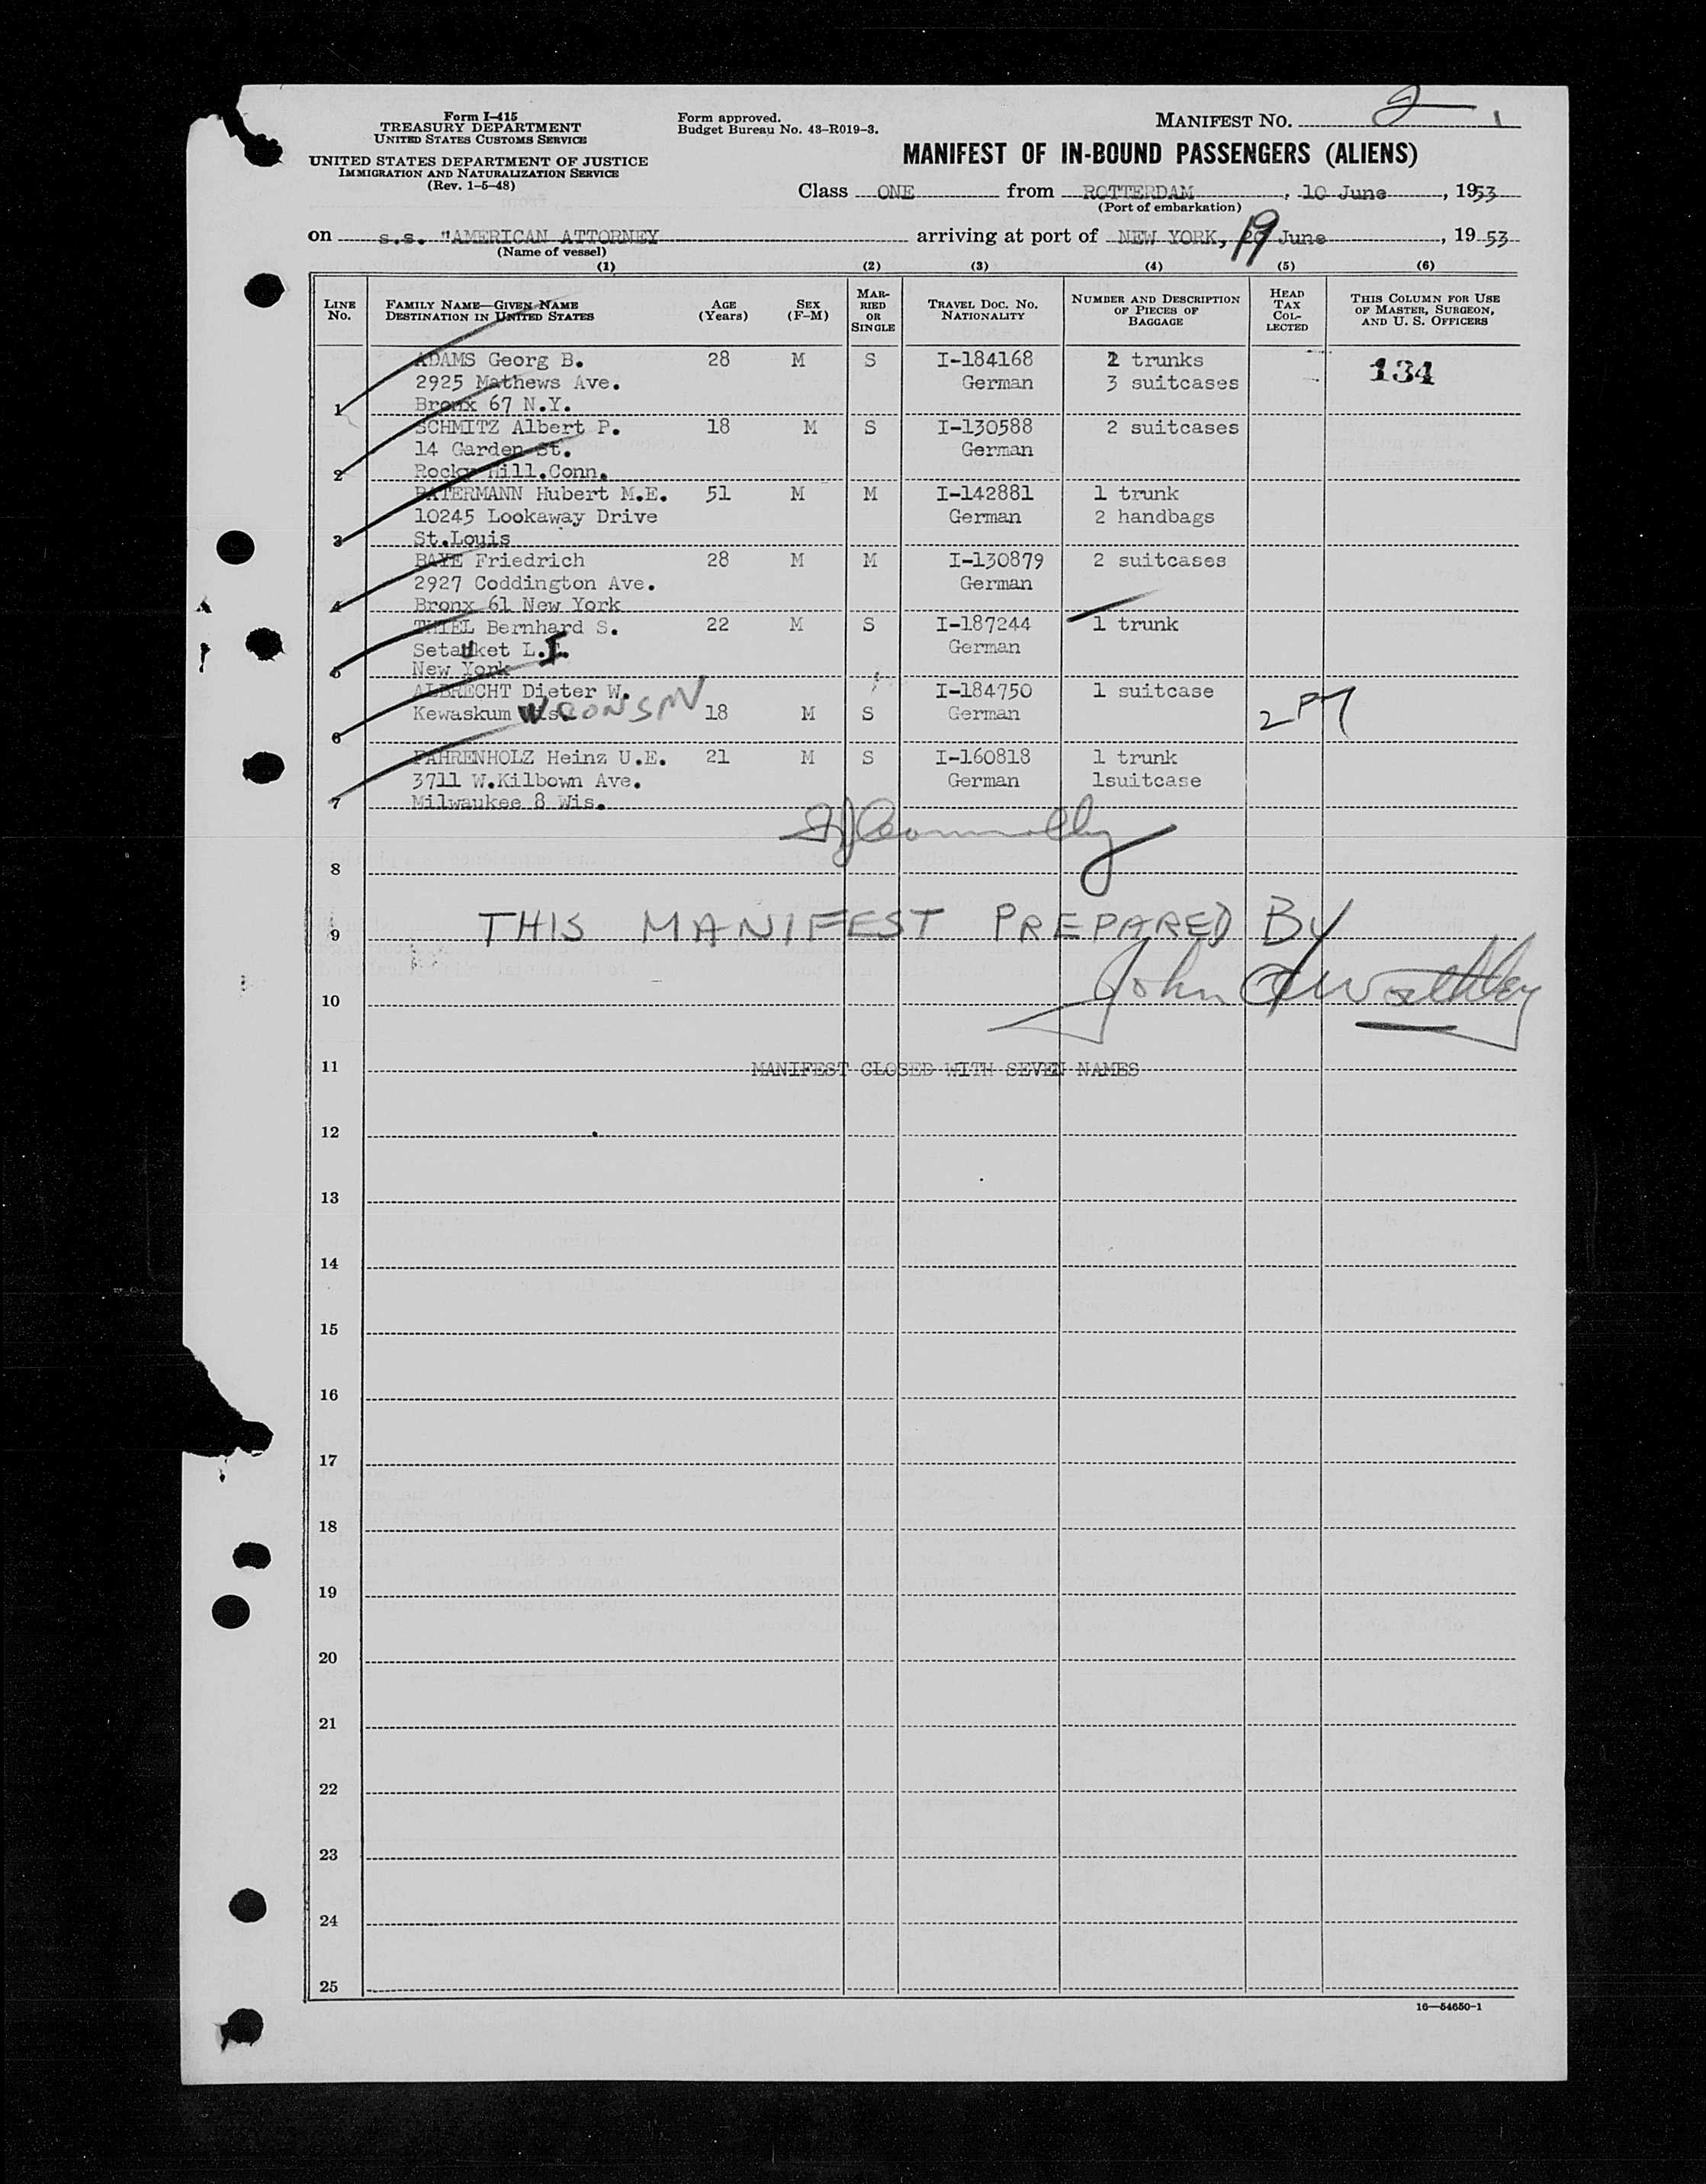 Form I-415
TREASURY DEPARTMENT
UNITED STATES CUSTOMS SERVICE
UNITED STATES DEPARTMENT OF JUSTICE
IMMIGRATION AND NATURALIZATION SERVICE
(Rev. 1-5-48)
Form approved.
Budget Bureau No. 43-R019-3.
MANIFEST NO. 2 1
MANIFEST OF IN-BOUND PASSENGERS (ALIENS)
Class ONE from ROTTERDAM, 10 June, 1953
(Port of embarkation)
on s.s. "AMERICAN ATTORNEY arriving at port of NEW YORK, 19 June, 1953
(Name of vessel)
(1) (2) (3) (4) (5) (6)
LINE No. FAMILY NAME—GIVEN NAME DESTINATION IN UNITED STATES AGE (Years) SEX (F-M) MARRIED OR SINGLE TRAVEL DOC. NO. NATIONALITY NUMBER AND DESCRIPTION OF PIECES OF BAGGAGE HEAD TAX COLLECTED THIS COLUMN FOR USE OF MASTER, SURGEON, AND U. S. OFFICERS
ADAMS Georg B. 28 M S I-184168 2 trunks 134
2925 Mathews Ave. German 3 suitcases
1 Bronx 67 N.Y.
SCHMITZ Albert P. 18 M S I-130588 2 suitcases
14 Garden St. German
2 Rocky Hill.Conn.
PATERMANN Hubert M.E. 51 M M I-142881 1 trunk
10245 Lookaway Drive German 2 handbags
3 St.Louis
BAYE Friedrich 28 M M I-130879 2 suitcases
2927 Coddington Ave. German
4 Bronx 61 New York
THIEL Bernhard S. 22 M S I-187244 1 trunk
Setauket L.I. German
5 New York
ALBRECHT Dieter W. I-184750 1 suitcase
Kewaskum WISCONSIN 18 M S German
6
FAHRENHOLZ Heinz U.E. 21 M S I-160818 1 trunk
3711 W.Kilbown Ave. German 1suitcase
7 Milwaukee 8 Wis.
8
9 THIS MANIFEST PREPARED BY
John
10
11 MANIFEST CLOSED WITH SEVEN NAMES
12
13
14
15
16
17
18
19
20
21
22
23
24
25
16—54650-1